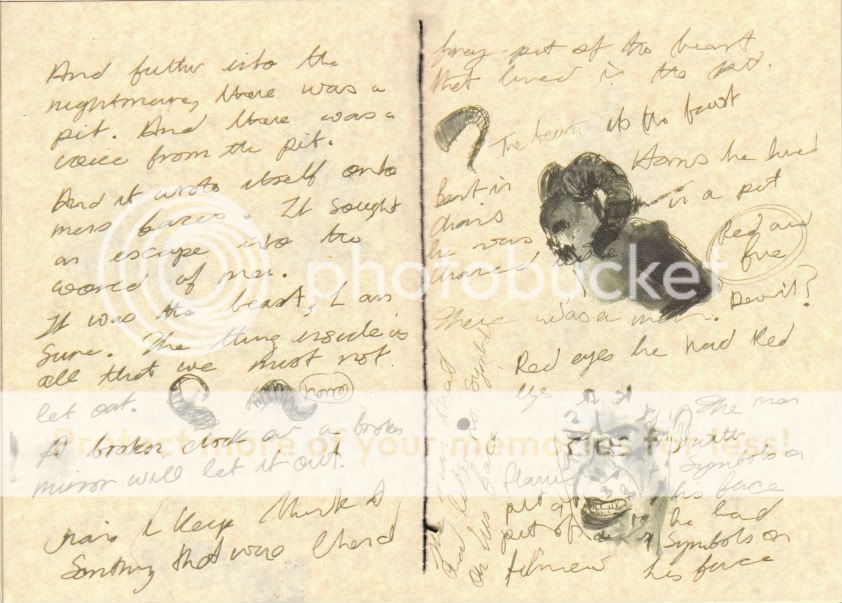 And further into the
nightmare, there was a
pit. And there was a
voice from the pit.
And it wrote itself onto
mens faces. It sought
an escape into the
world of men.
It was the beast, I am
sure. The thing inside is
all that we must not
let out.
horror
A broken clock or a broken
mirror will let it out.
I keep
Something that was
pit of the beast
that lived in the pit.
The beast
it the
Horns he had
in a pit
Bent in
chains
he was
chained
Red and
fire
Devil?
There was a man.
Red eyes he had Red
eyes
The man
with
symbols on
his face
he had
symbols on
his face
pit a
pit of
on his face
photobucket
Protect more of your memories for less!